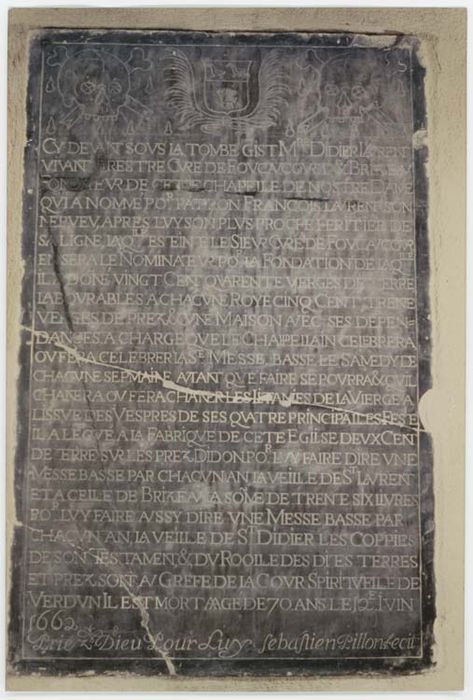 CY DEVANT SOVS LA TOMBE GIST Mre DIDIER LAVRENT
VIVANT PRESTRE CVRE DE FOVCAVCOVRT & BRI
DE CETE CHAPELLE DE NOSTRE DAME
QVI A NOMME POr PATRON FRANCOIS LAVRENT SON
NEPVEV, APRES LVY SON PLVS PROCHE HERITIER DE
SA LIGNE, LAQlle ESTEINTE LE SIEVR CVRE DE FOVCAVCOVR
EN SERA LE NOMINATEVR POr LA FONDATION DE LAQlle
IL A DONE VINGT CENT QVARENTE VERGES DE TERRE
LABOVRABLES A CHACVNE ROYE CINQ CENT TRENE
VERGES DE PREZ & VNE MAISON AVEC SES DEPEN-
DANCES, A CHARGE QVE LE CHAPELLAIN CELEBRERA
OV FERA CELEBRER LA Ste MESSE BASSE LE SAMEDY DE
CHACVNE SEPMAINE AVTANT QVE FAIRE SE POVRRA & QVIL
CHANTERA OV FERA CHANTER LES LITANIES DE LA VIERGE A
LISSVE DES VESPRES DE SES QVATRE PRINCIPALLES FESTE
IL A LEGVE A LA FABRIQVE DE CETE EGLISE DEVX CENT
DE TERRE SVR LES PREZ DIDON POr LVY FAIRE DIRE VNE
MESSE BASSE PAR CHACVN AN LA VEILLE DE St LAVRENT
ET A CELLE DE BRIZEA LA SOME DE TRENTE SIX LIVRES
POr LVY FAIRE AVSSY DIRE VNE MESSE BASSE PAR
CHACVN AN LA VEILLE DE St DIDIER LES COPPIES
DE SON TESTAMENT & DV ROOLLE DES DITES TERRES
ET PREZ SONT AV GREFE DE LA COVR SPIRITVELLE DE
VERDVN IL EST MORT AAGE DE 70 ANS LE IVIN
1662
Prie Dieu Pour Luy. Sebastien Pillon fecit